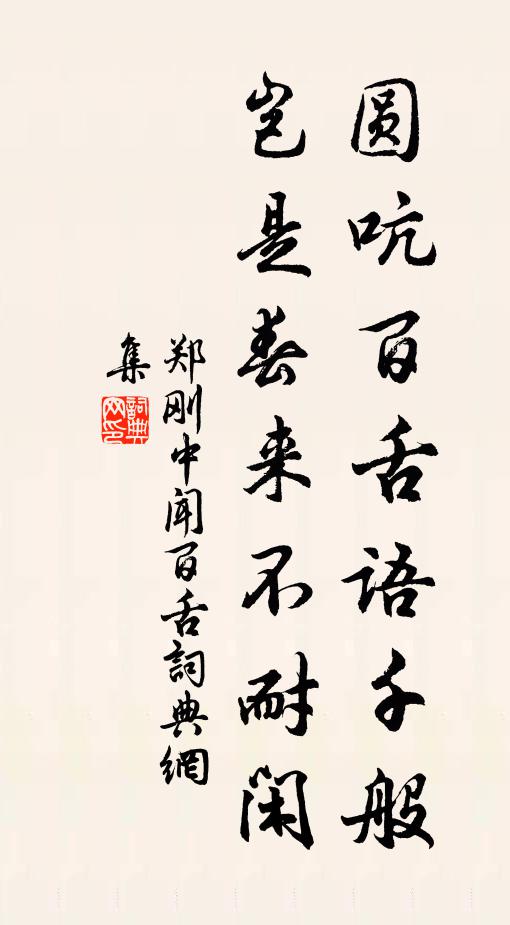 圆吭百舌語千般
岂是春来不耐闲
郑刚中闻百舌詞典網
集
詞典网印